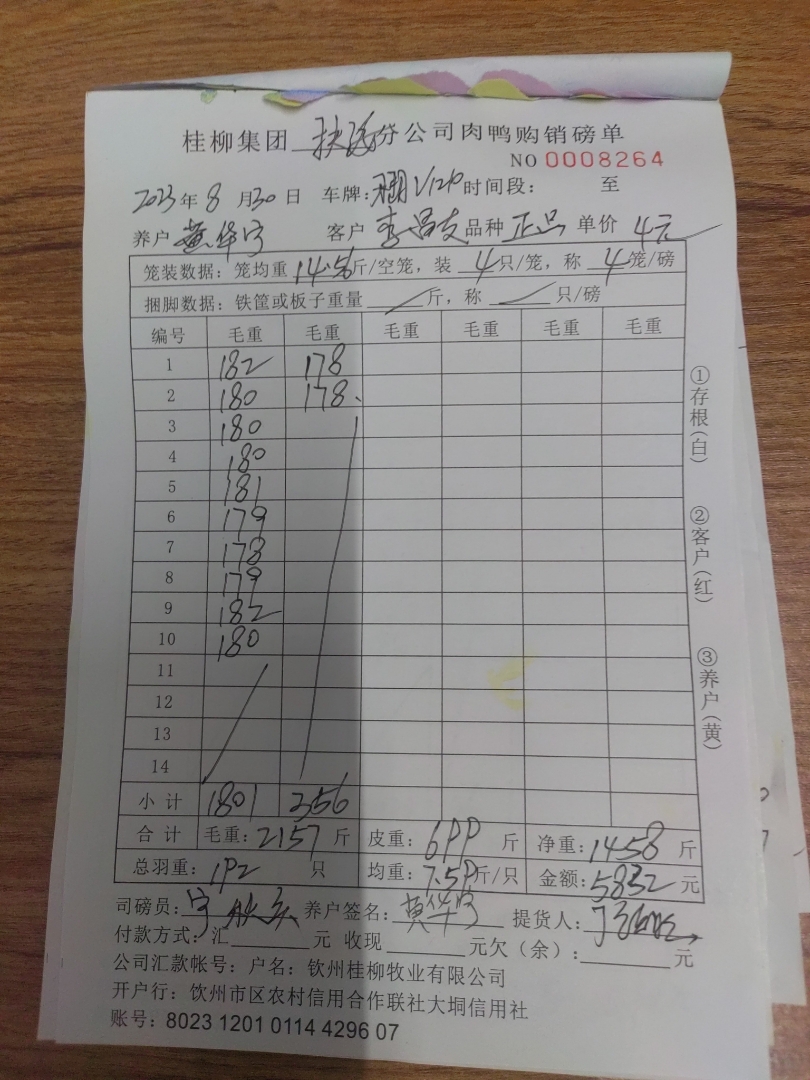 桂柳集团 分公司肉鸭购销磅单
NO 0008264
2023年8月30日 车牌: 时间段: 至
养户 黄华宇 客户 李昌友 品种 正品 单价 4元
笼装数据:笼均重14.56斤/空笼,装4只/笼,称4笼/磅
捆脚数据:铁筐或板子重量 斤,称 只/磅
编号 毛重 毛重 毛重 毛重 毛重 毛重
1 182 178
2 180 178
3 180
4 180
5 181
6 179
7 178
8 179
9 182
10 180
11
12
13
14
小计 1801 356
合计 毛重:2157斤 皮重:699斤 净重:1458斤
总羽重:192只 均重:7.59斤/只 金额:5832元
司磅员: 养户签名:黄华宇 提货人:
付款方式:汇 元 收现 元欠(余): 元
公司汇款帐号:户名:钦州桂柳牧业有限公司
开户行:饮州市区农村信用合作联社大垌信用社
账号:8023 1201 0114 4296 07
①存根(白)
②客户(红)
③养户(黄)